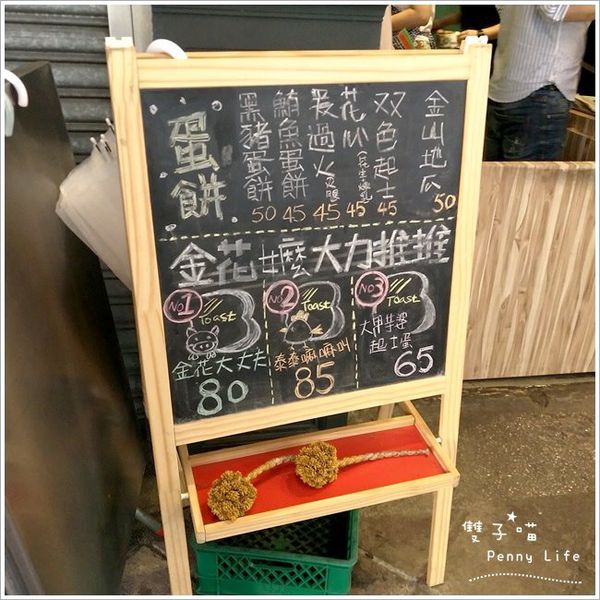 蛋餅
黑豬蛋餅 50
鮪魚蛋餅 45
愛過火 45
花心(花生+煉乳) 45
双色起士 45
金山地瓜 50
金花什麼大力推推
NO1
Toast
金花大丈夫
80
NO2
Toast
泰泰嘛嘛叫
85
NO3
Toast
大甲芋婆
起士蛋
65
雙子喵
Penny Life